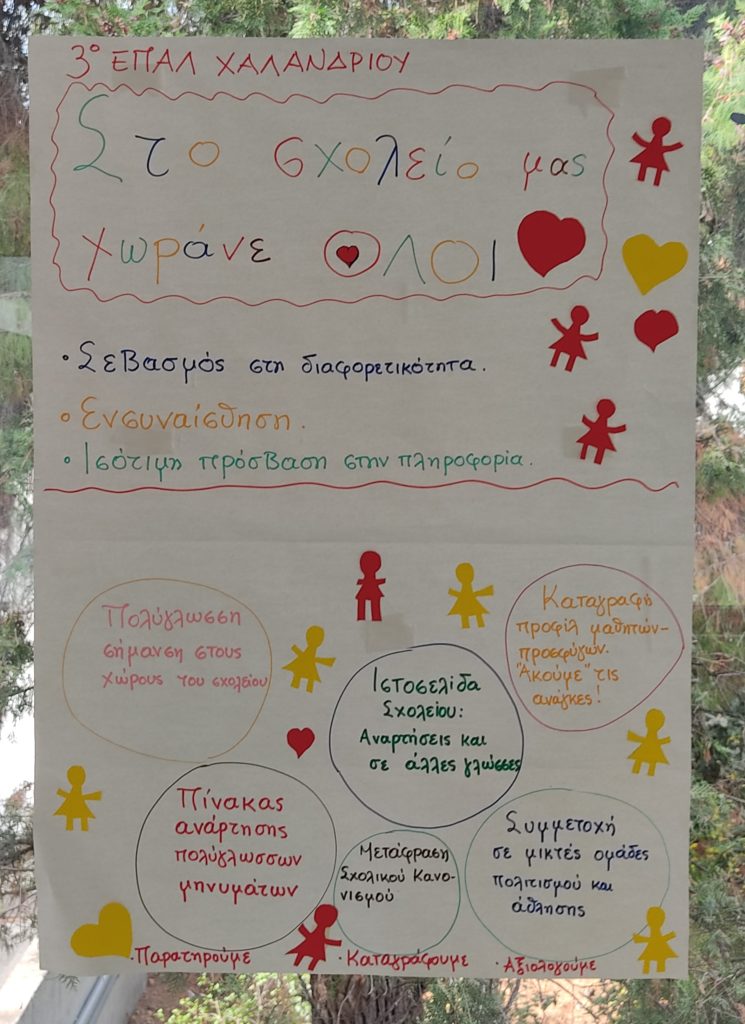 3° ΕΠΑΛ ΧΑΛΑΝΔΡΙΟΥ
Στο σχολείο μας
χωράνε ΟΛΟΙ
• Σεβασμός στη διαφορετικότητα.
• Ενσυναίσθηση.
• Ισότιμη πρόσβαση στην πληροφορία.
Πολύγλωσση
σήμανση στους
χώρους του σχολείου
Καταγραφή
προφίλ μαθητών-
προσφύγων.
"Ακούμε" τις
ανάγκες!
Ιστοσελίδα
Σχολείου:
Αναρτήσεις και
σε άλλες γλώσσες
Πίνακας
ανάρτησης
πολύγλωσσων
μηνυμάτων
Μετάφραση
Σχολικού Κανο-
νισμού
Συμμετοχή
σε μικτές ομάδες
πολιτισμού και
άθλησης
• Παρατηρούμε • Καταγράφουμε • Αξιολογούμε